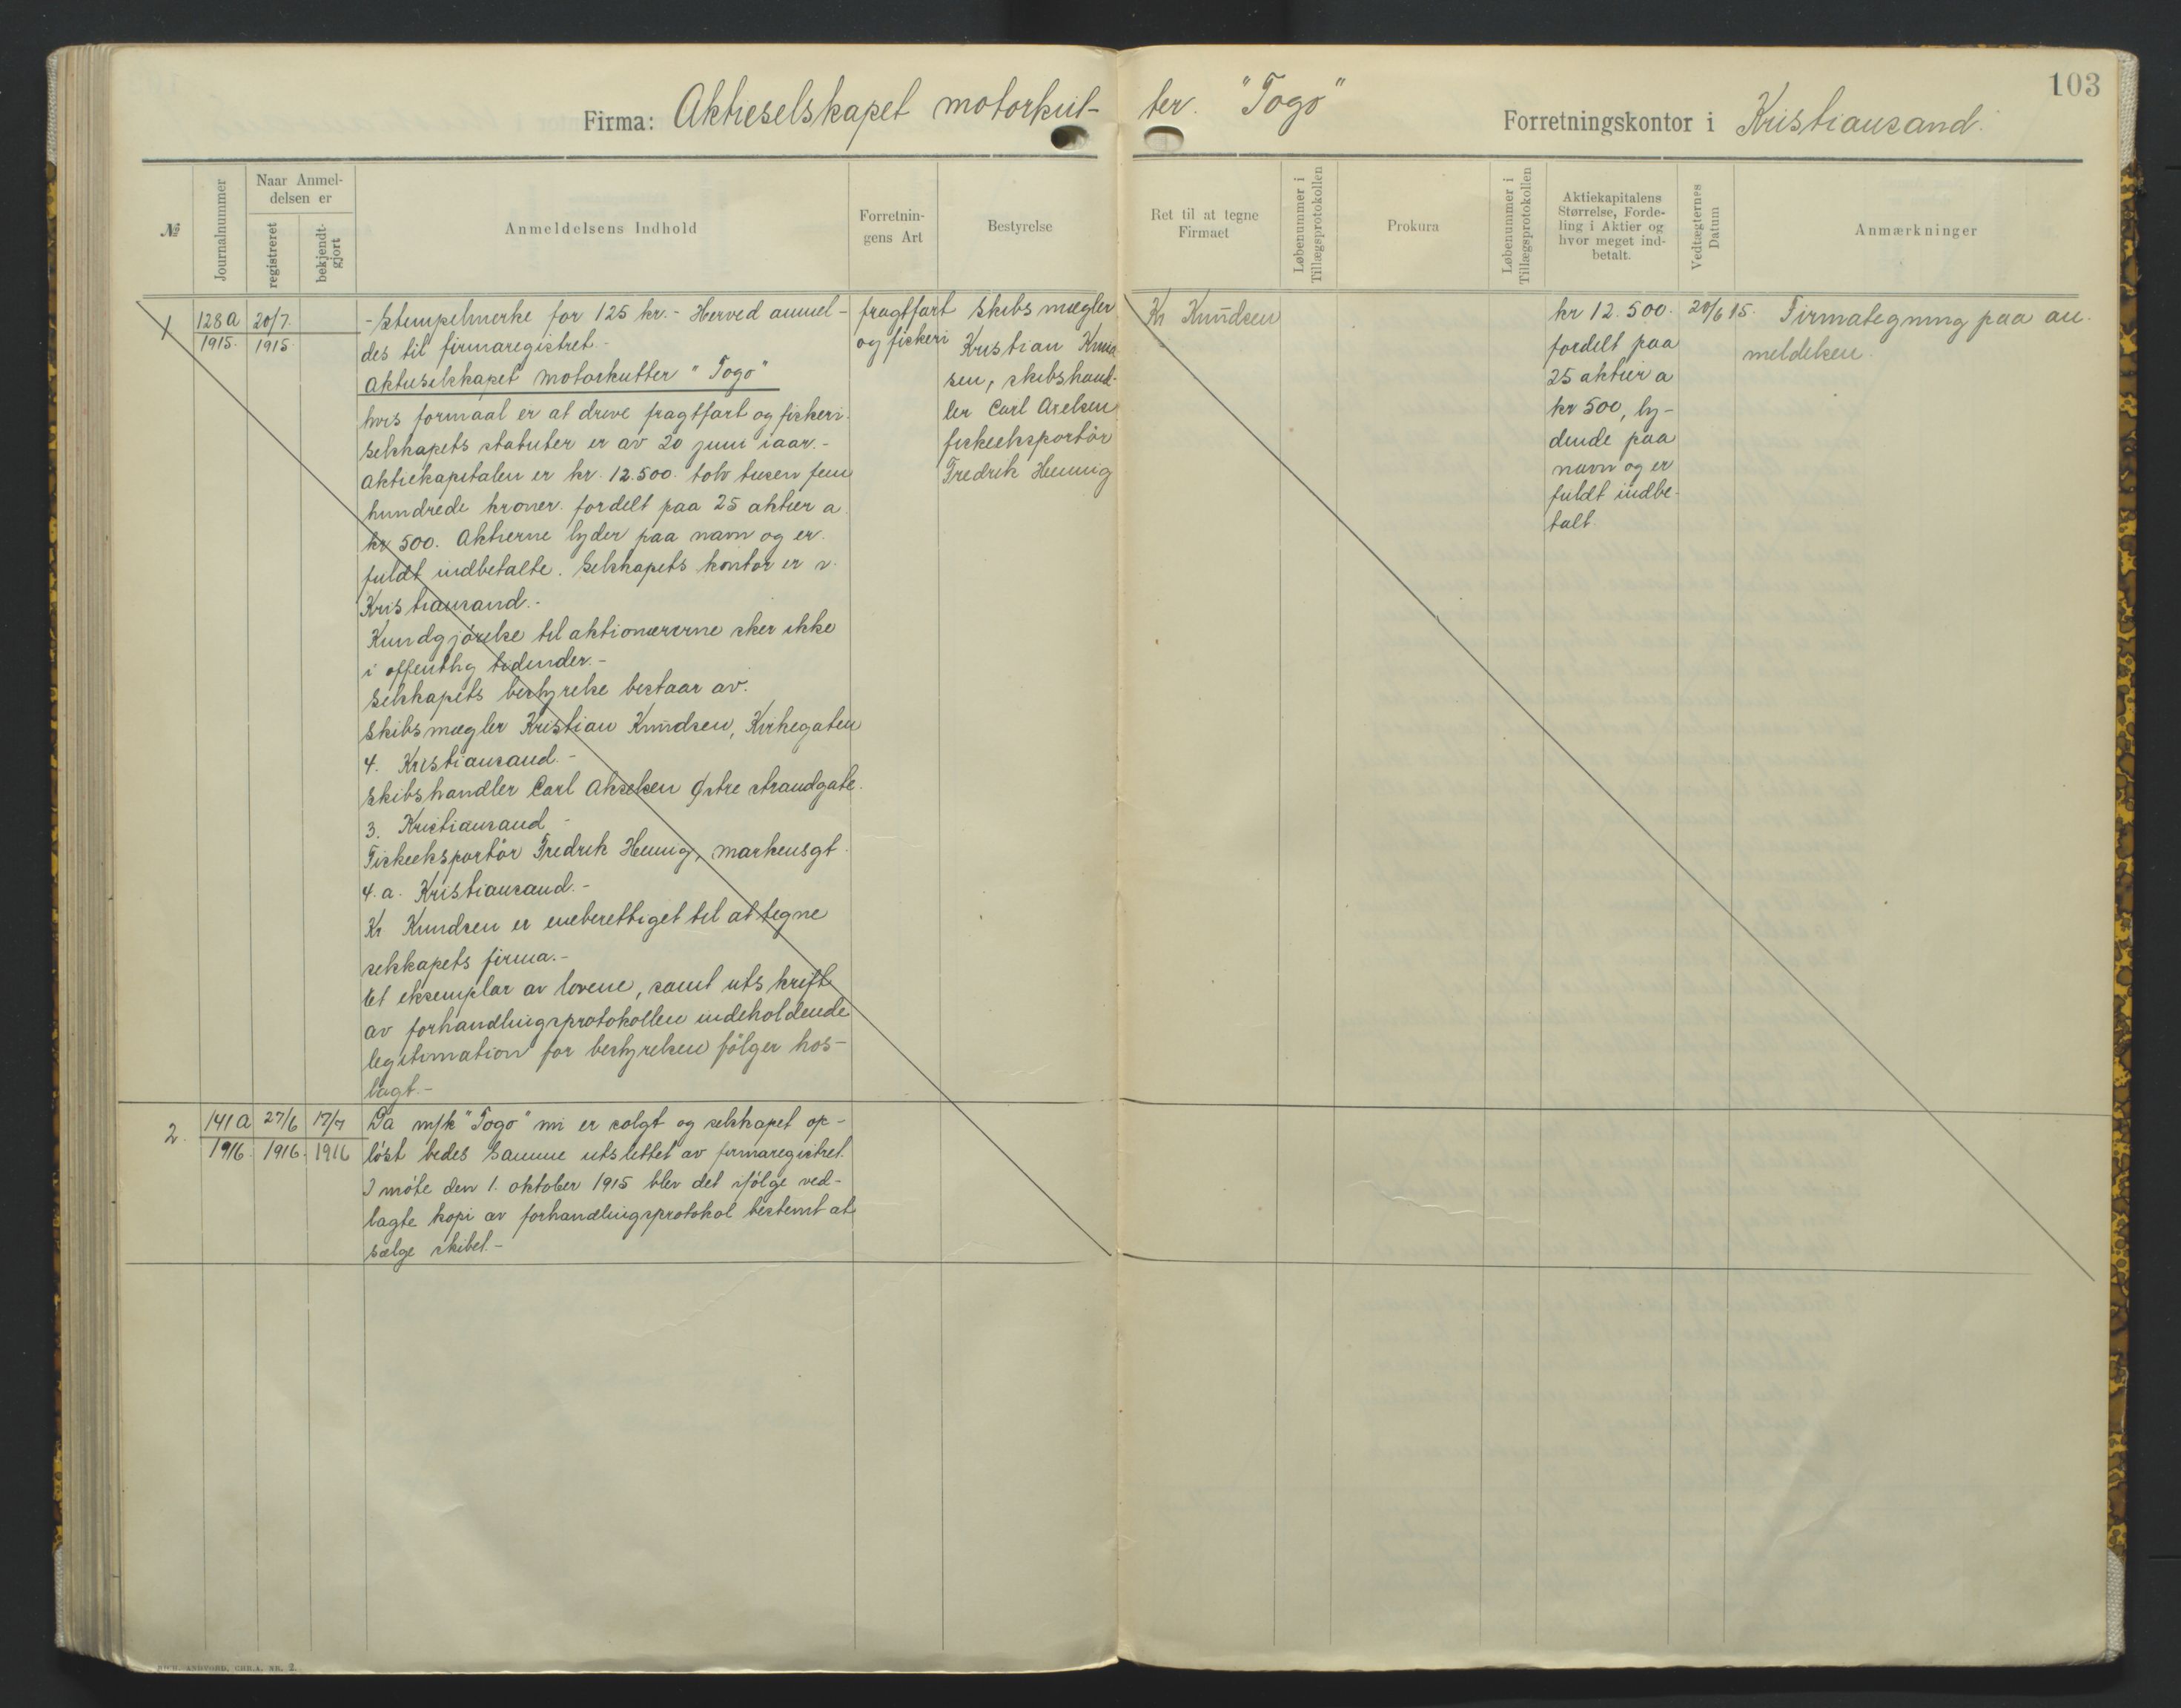 103
Firma: Aktieselskapet motorkut-
ter. "Togo"
Forretningskontor i Kristiansand.
№
Journalnummer
Naar Anmel-
delsen er
registreret
bekjendt-
gjort
Anmeldelsens Indhold
Forretnin-
gens Art
Bestyrelse
Ret til at tegne
Firmaet
Løbenummer i
Tillægsprotokollen
Prokura
Løbenummer i
Tillægsprotokollen
Aktiekapitalens
Størrelse, Forde-
ling i Aktier og
hvor meget ind-
betalt.
Vedtægternes
Datum
Anmærkninger
1
128a
1915.
20/7.
1915
- Stempelmerke for 125 kr. - Herved anmel-
des til firmaregistret.-
aktieselskapet motorkutter "Togo"
hvis formaal er at drive fragtfart og fiskeri.
Selskapets statuter er av 20 juni iaar.-
aktiekapitalen er kr. 12.500. tolv tusen fem
hundrede kroner. fordelt paa 25 aktier a
kr 500. Aktierne lyder paa navn og er.
fuldt indbetalte. Selskapets kontor er i.
Kristiansand.-
Kundgjørelse til aktionærerne sker ikke
i offentlig tidender.-
Selskapets bestyrelse bestaar av.
Skibsmægler Kristian Knudsen, Kirkegaten
4. Kristiansand.-
Skibshandler Carl Akselsen Østre strandgate.
3. Kristiansand -
Fiskeeksportør Fredrik Hennig, markensgt.
4.a. Kristiansand.-
Kr Knudsen er eneberettiget til at tegne
selskapets firma.-
Et eksemplar av lovene, samt utskrift
av forhandlingsprotokollen indeholdende
legitimation for bestyrelsen følger hos-
lagt.-
fragtfart
og fiskeri
Skibsmægler
Kristian Knud
sen, skibshand-
ler Carl Axelsen
fiskeeksportør
Fredrik Hennig
Kr Knudsen
kr 12.500.
fordelt paa
25 aktier a
kr 500, ly-
dende paa
navn og er
fuldt indbe-
talt.
20/6 15.
Firmategning paa an-
meldelsen.
2.
141a
1916.
27/6
1916.
17/7
1916
Da m/k "Togo" nu er solgt og selskapet op-
løst bedes samme utslettet av firmaregistret.
I møte den 1. oktober 1915 blev det ifølge ved-
lagte kopi av forhandlingsprotokol bestemt at
sælge skibet.-
RICH. ANDVORD, CHR.A. NR. 2.